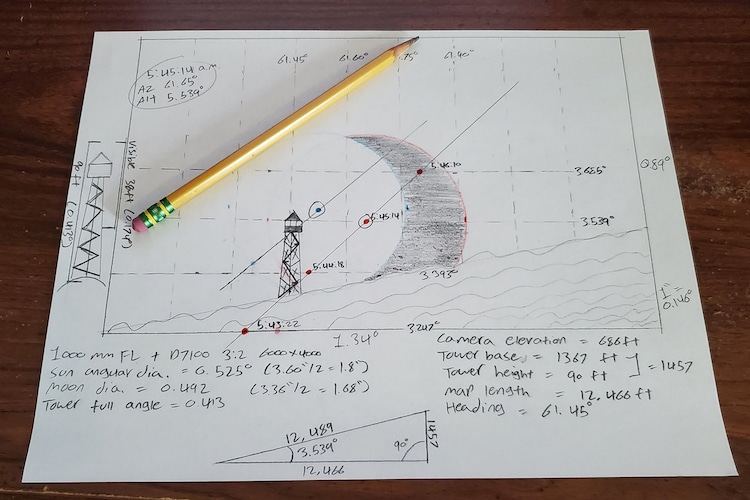 5:45:14 a.m
AZ 61.65°
Alt 5.539°
61.45°
61.60°
.75°
61.90°
5:46:10
3.685°
0.89°
5:45:14
3.539°
5:44:18
3.393°
1"
0.146°
5:43:22
1.34°
3.247°
90ft (0.413°)
Visible 38ft (0.174°)
1000 mm FL + D7100 3:2 6000x4000
Sun angular dia. = 0.525° (3.60"/2 = 1.8")
moon dia. = 0.492 (3.36"/2 = 1.68")
Tower full angle = 0.413
Camera elevation = 686 ft
Tower base = 1367 ft
Tower height = 90 ft
= 1457
map length = 12,466 ft
Heading = 61.45°
12,489
3.539°
90°
1457
12,466